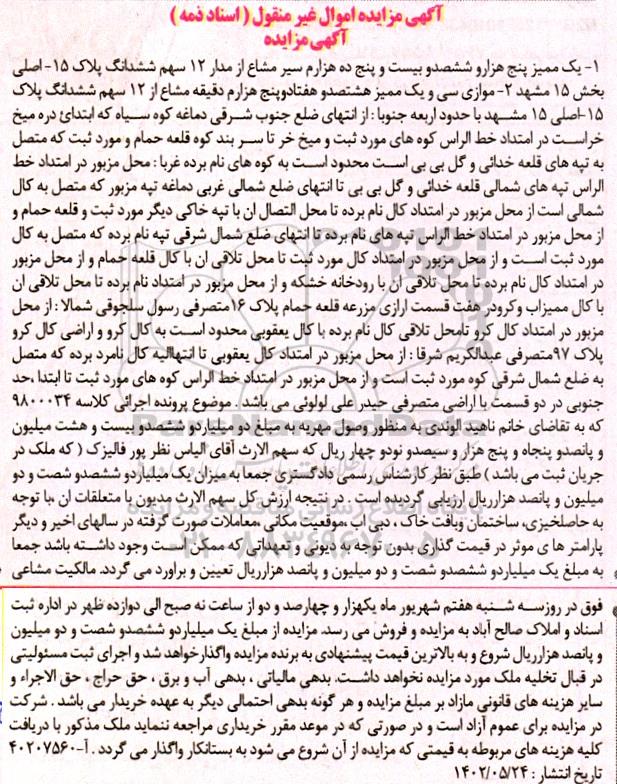 آگهی مزایده اموال غیر منقول ( اسناد ذمه )
آگهی مزایده
۱- یک ممیز پنج هزارو ششصدو بیست و پنج ده هزارم سیر مشاع از مدار ۱۲ سهم ششدانگ پلاک ۱۵- اصلی
بخش ۱۵ مشهد ۲- موازی سی و یک ممیز هشتصدو هفتادوپنج هزارم دقیقه مشاع از ۱۲ سهم ششدانگ پلاک
۱۵-اصلی ۱۵ مشهد با حدود اربعه جنوبا : از انتهای ضلع جنوب شرقی دماغه کوه سیاه که ابتدائ دره میخ
خراست در امتداد خط الراس کوه های مورد ثبت و میخ خر تا سر بند کوه قلعه حمام و مورد ثبت که متصل
به تپه های قلعه خدائی و گل بی بی است محدود است به کوه های نام برده غربا : محل مزبور در امتداد خط
الراس تپه های شمالی قلعه خدائی و گل بی بی تا انتهای ضلع شمالی غربی دماغه تپه مزبور که متصل به کال
شمالی است از محل مزبور در امتداد کال نام برده تا محل التصال ان با تپه خاکی دیگر مورد ثبت و قلعه حمام و
از محل مزبور در امتداد خط الراس تپه های نام برده تا انتهای ضلع شمال شرقی تپه نام برده که متصل به کال
مورد ثبت است و از محل مزبور در امتداد کال مورد ثبت تا محل تلاقی ان با کال قلعه حمام و از محل مزبور
در امتداد کال نام برده تا محل تلاقی ان با رودخانه خشکه و از محل مزبور در امتداد نام برده تا محل تلاقی ان
با کال ممیزاب وکرودر هفت قسمت ارازی مزرعه قلعه حمام پلاک ۱۶متصرفی رسول سلجوقی شمالا : از محل
مزبور در امتداد کال کرو تامحل تلاقی کال نام برده با کال یعقوبی محدود است به کال کرو و اراضی کال کرو
پلاک ۹۷متصرفی عبدالکریم شرقا : از محل مزبور در امتداد کال یعقوبی تا انتهاالیه کال نامرد برده که متصل
به ضلع شمال شرقی کوه مورد ثبت است و از محل مزبور در امتداد خط الراس کوه های مورد ثبت تا ابتدا ،حد
جنوبی در دو قسمت با اراضی متصرفی حیدر علی لولوئی می باشد . موضوع پرونده اجرائی کلاسه ۹۸۰۰۰۳۴
که به تقاضای خانم ناهید الوندی به منظور وصول مهریه به مبلغ دو میلیاردو ششصدو بیست و هشت میلیون
و پانصدو پنجاه و پنج هزار و سیصدو نودو چهار ریال که سهم الارث آقای الیاس نظر پور فالیزک ( که ملک در
جریان ثبت می باشد ) طبق نظر کارشناس رسمی دادگستری جمعا به میزان یک میلیاردو ششصدو شصت و دو
میلیون و پانصد هزارریال ارزیابی گردیده است . در نتیجه ارزش کل سهم الارث مدیون با متعلقات ان ،با توجه
به حاصلخیزی، ساختمان وبافت خاک ، دبی اب ،موقعیت مکانی ،معاملات صورت گرفته در سالهای اخیر و دیگر
پارامتر ها ی موثر در قیمت گذاری بدون توجه به دیونی و تعهداتی که ممکن است وجود داشته باشد جمعا
به مبلغ یک میلیاردو ششصدو شصت و دو میلیون و پانصد هزارریال تعیین و براورد می گردد. مالکیت مشاعی
فوق در روزسه شنبه هفتم شهریور ماه یکهزار و چهارصد و دو از ساعت نه صبح الی دوازده ظهر در اداره ثبت
اسناد و املاک صالح آباد به مزایده و فروش می رسد. مزایده از مبلغ یک میلیاردو ششصدو شصت و دو میلیون
و پانصد هزارریال شروع و به بالاترین قیمت پیشنهادی به برنده مزایده واگذارخواهد شد و اجرای ثبت مسئولیتی
در قبال تخلیه ملک مورد مزایده نخواهد داشت. بدهی مالیاتی ، بدهی آب و برق ، حق حراج ، حق الاجراء و
سایر هزینه های قانونی مازاد بر مبلغ مزایده و هر گونه بدهی احتمالی دیگر به عهده خریدار می باشد . شرکت
در مزایده برای عموم آزاد است و در صورتی که در موعد مقرر خریداری مراجعه ننماید ملک مذکور با دریافت
کلیه هزینه های مربوطه به قیمتی که مزایده از آن شروع می شود به بستانکار واگذار می گردد . آ-۴۰۲۰۷۵۶۰
تاریخ انتشار : ۱۴۰۲/۰۵/۲۴